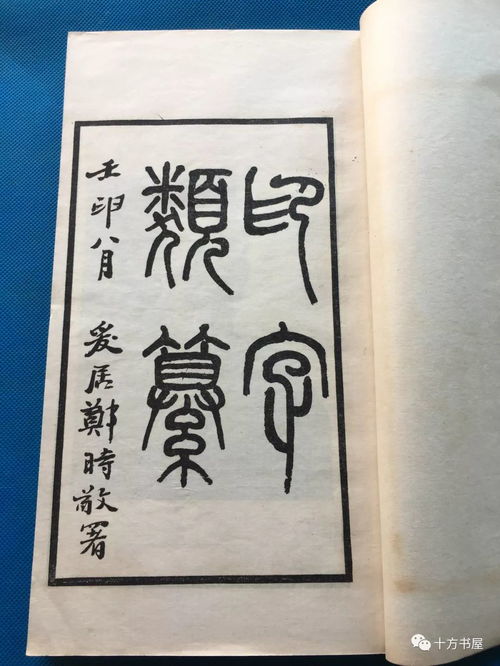 印字
類纂
壬卯八月 爰居鄭時敬署
十方书屋